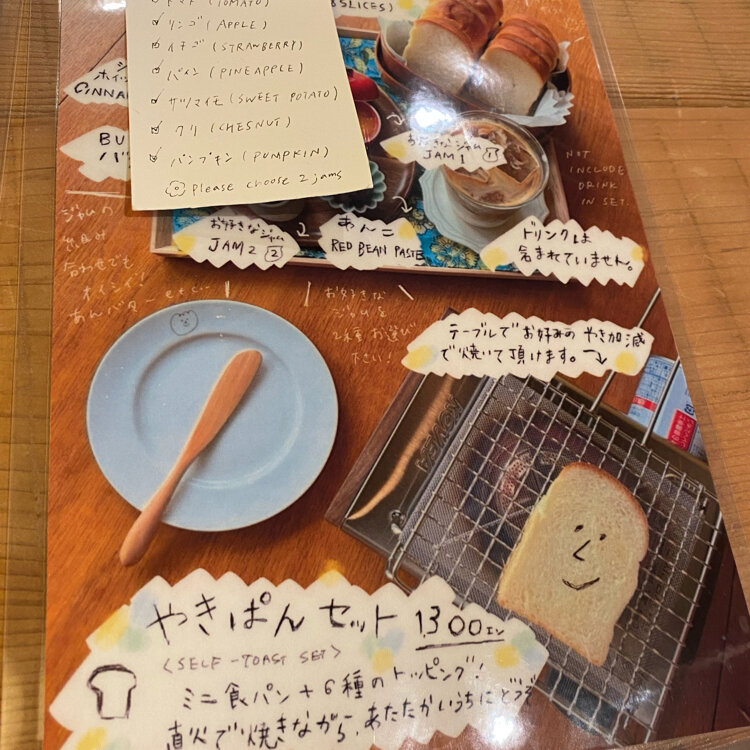 トマト (TOMATO)
リンゴ (APPLE)
イチゴ (STRAWBERRY)
パイン (PINEAPPLE)
サツマイモ (SWEET POTATO)
クリ (CHESNUT)
パンプキン (PUMPKIN)
Please choose 2 jams
SLICES)
ホイッ
CINNA
BU
バ
お好きなジャム
JAM 1 1
NOT
INCLUDE
DRINK
IN SET.
お好きなジャム
JAM 2 2
あんこ
RED BEAN PASTE
ドリンクは
含まれていません。
ジャムの
組み
合わせでも
オイシイ!
あんバター etc...
お好きな
ジャムを
2種お選び
下さい!
テーブルでお好みのやき加減
で焼いて頂けます。
やきぱんセット 1300エン
<SELF-TOAST SET>
ミニ食パン+6種のトッピング!
直火で焼きながら、あたたかいうちにどうぞ